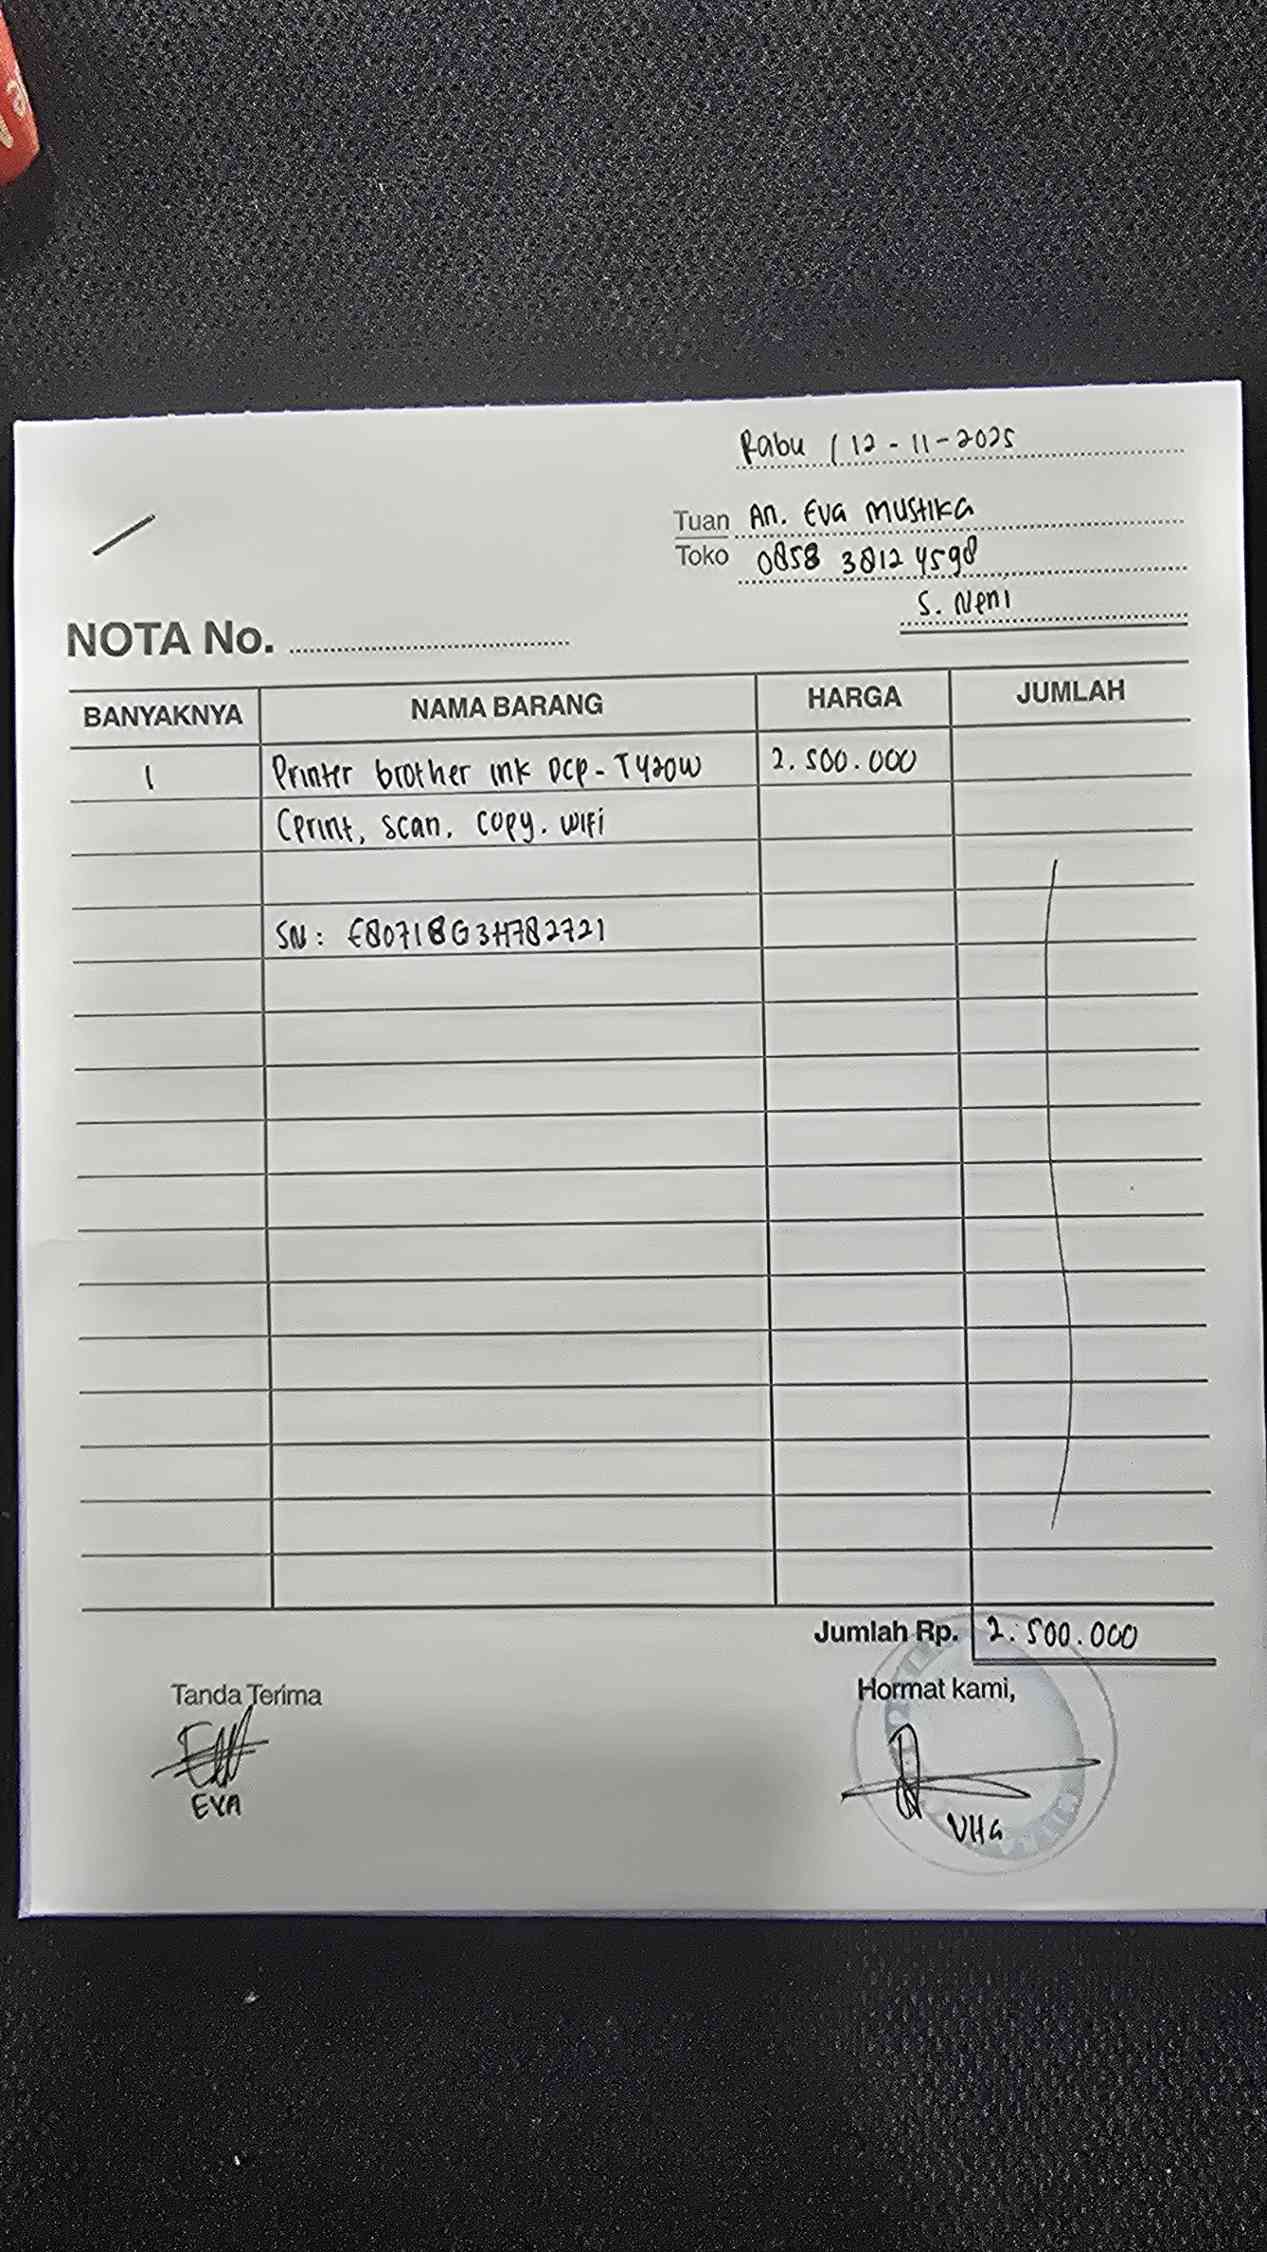 Rabu / 12 - 11 - 2025
Tuan An. Eva Mustika
Toko 0858 3812 4598
S. Neni
NOTA No.
BANYAKNYA NAMA BARANG HARGA JUMLAH
1 Printer brother ink DCP - T420W 2.500.000
(print, scan, copy. wifi
SN : E80718G3H782721
Jumlah Rp. 2.500.000
Tanda Terima Hormat kami,
EVA